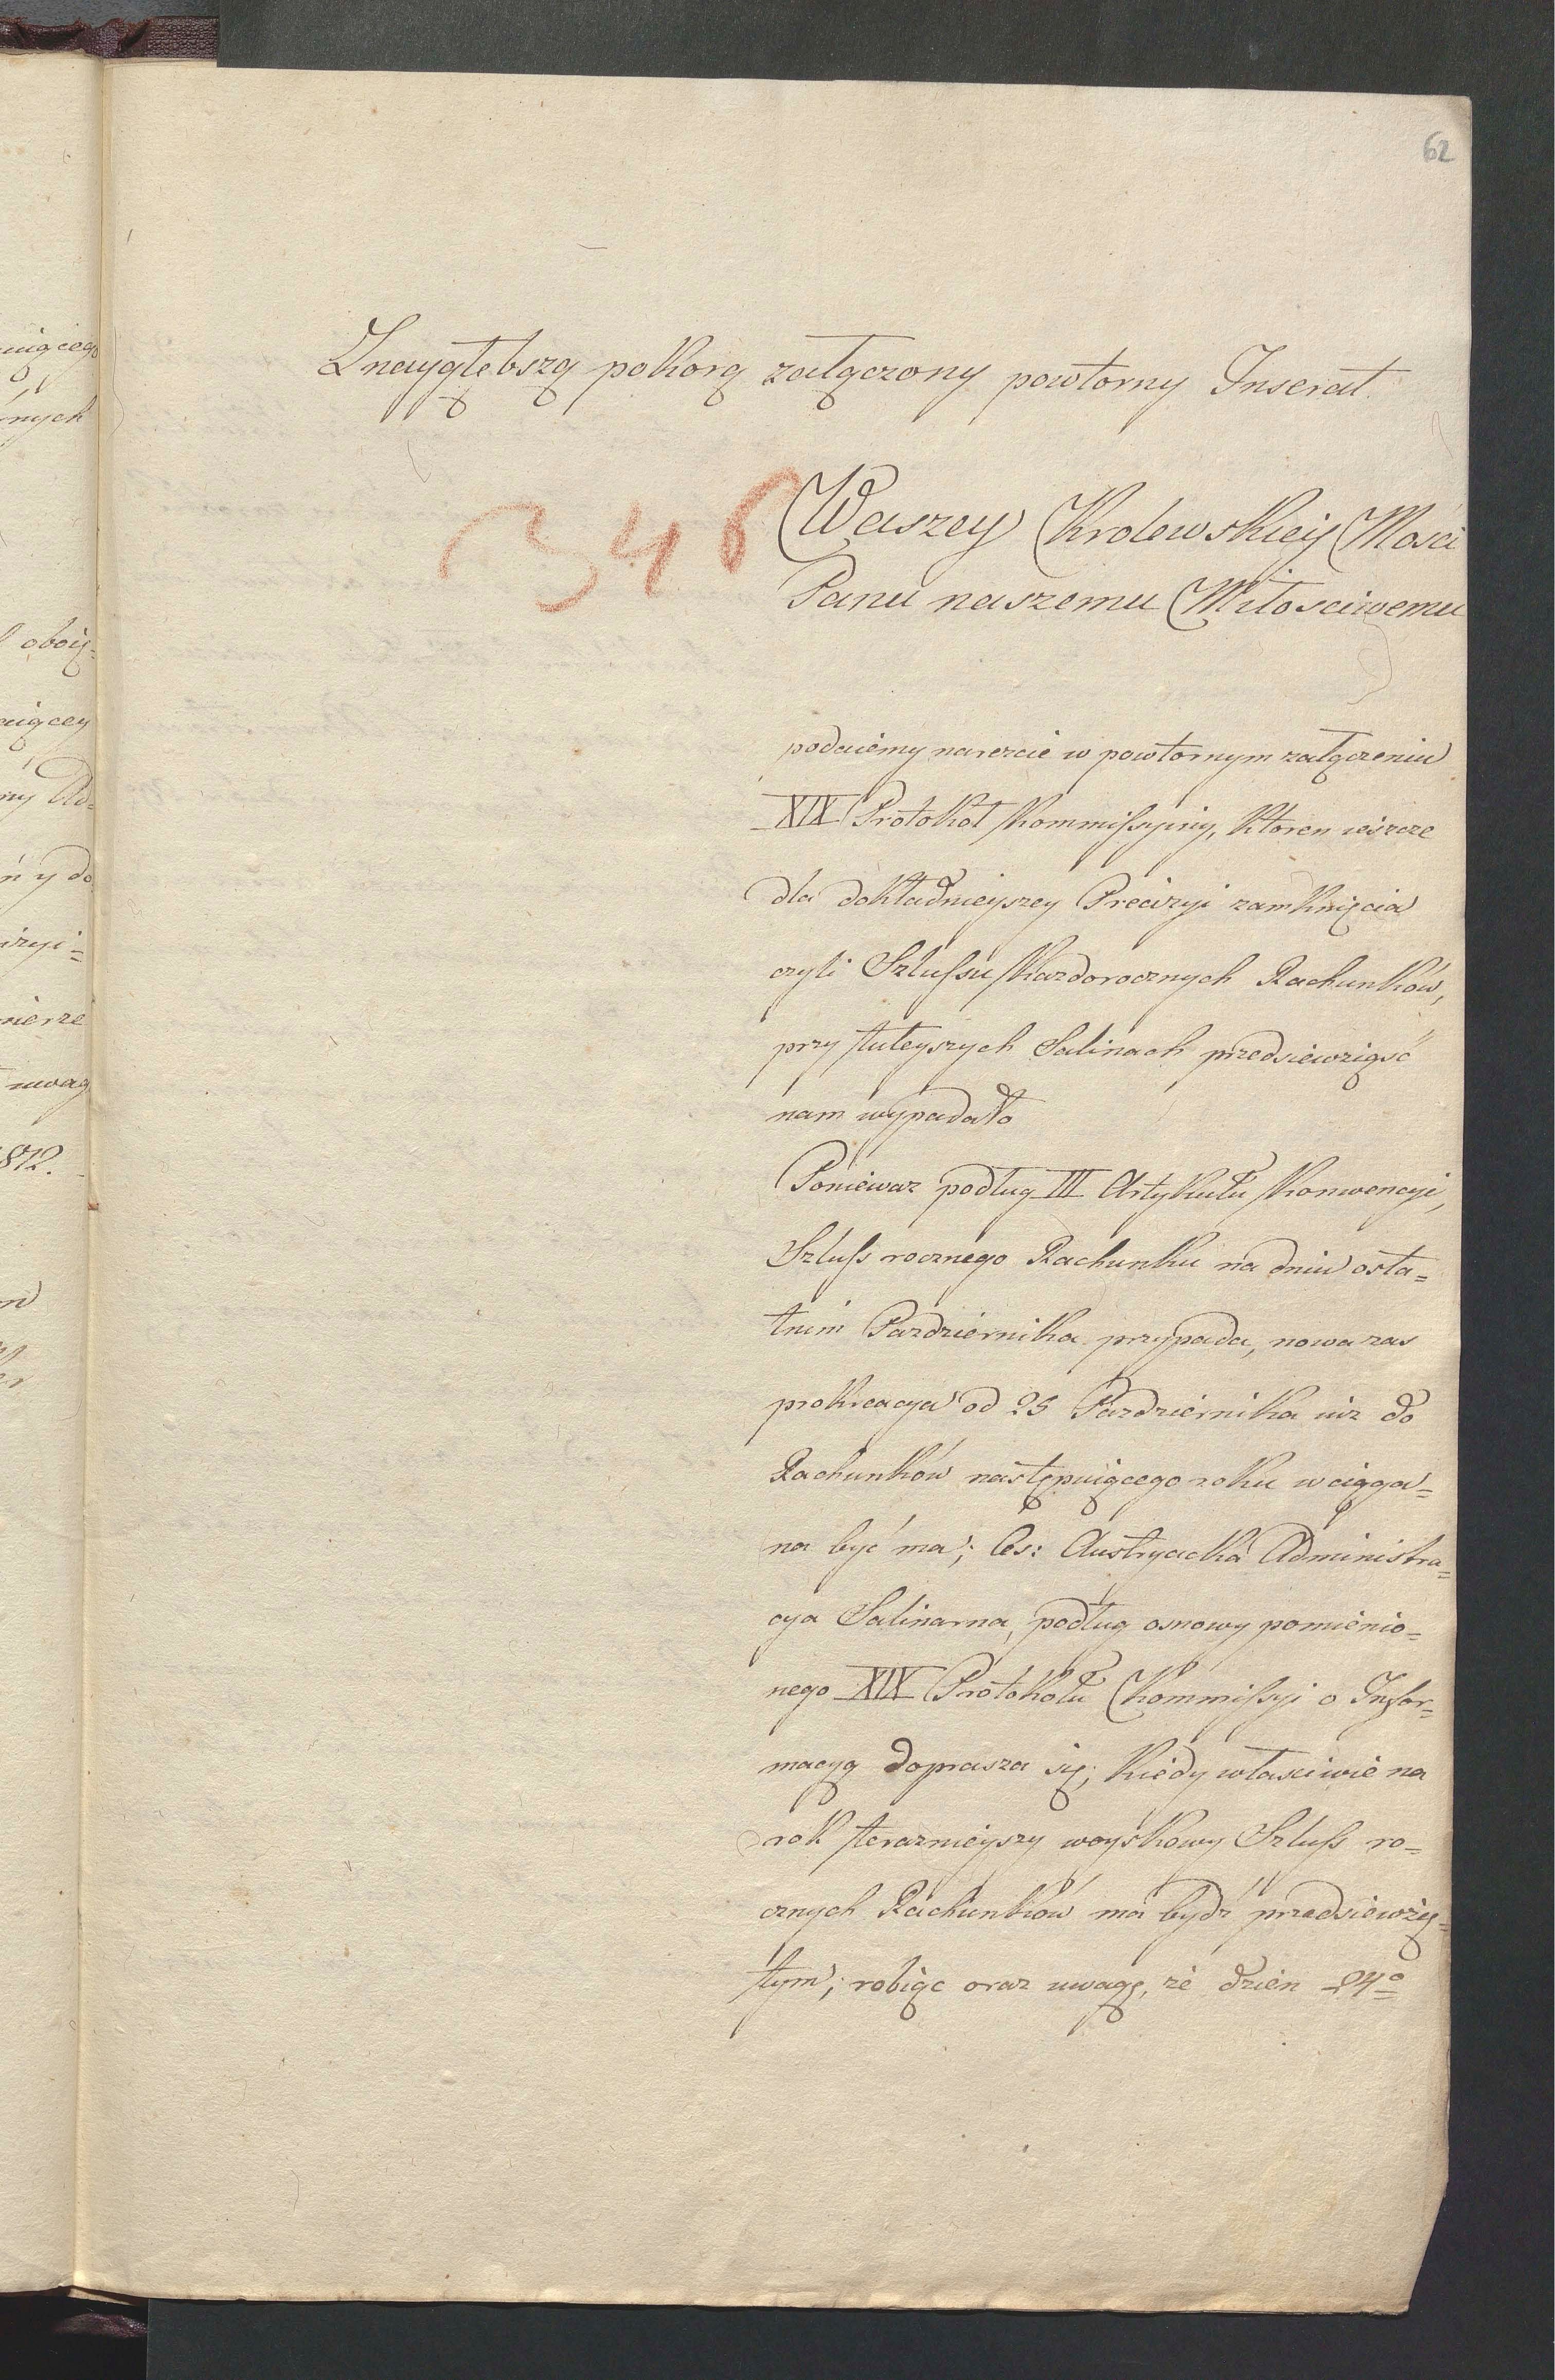 62
Z nayglębszą pokorą załączony powtorny Inserat.
346
Waszey Krolewskiey Mości
Panu naszemu Miłosciwemu
podaiemy nareżcie w powtornym załączeniu
XIX Protokoł Kommissyiny, ktoren ieszcze
dla dokładnieyszey Precizyi zamknięcia
czyli Szlussu kazdorocznych Rachunków,
przy tuteyszych Salinach przedsiewziąść
nam wypadało
Poniewaz podług III Artykułu Konwencyi,
Szluss rocznego Rachunku na dniu osta=
tnim Pazdziernika przypada, nowa zas
prokreacya od 25 Pazdziernika iuz do
Rachunków następuiącego roku wciąga=
na być ma; Ces: Austryacka Administra=
cya Salinarna, podług osnowy pomienio=
nego XIX Protokołu Kommissyi o Infor=
macyą doprasza się, kiedy właściwie na
rok teraznieyszy woyskowy Szluss ro=
cznych Rachunków ma bydź przedsiewzię=
tym; robiąc oraz uwagę, że dzien 24º
uiącego
rnych
oboią=
uiącey
ny Ad=
ń y do
izyi=
mierze
uwag
812.